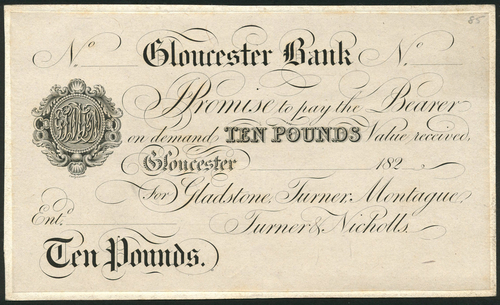 85
No Gloucester Bank No
I Promise to pay the Bearer
on demand TEN POUNDS Value received,
Gloucester 182
For Gladstone, Turner, Montague,
Ent.d Turner & Nicholls.
Ten Pounds.